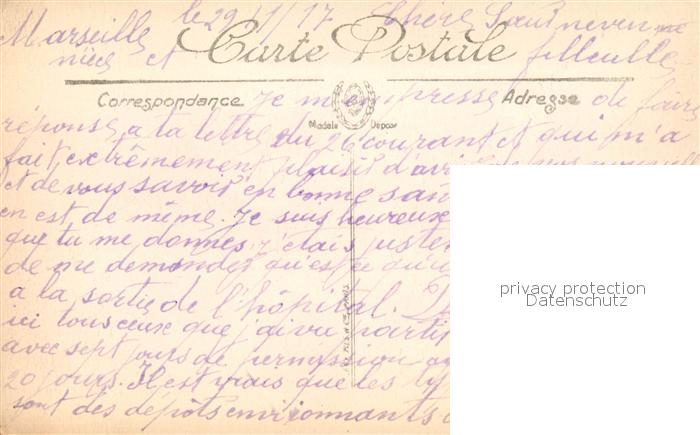 Marseille le 29/1/17 Chère Sœur neveu
nièce et filleulle
Carte Postale
Correspondance
Adresse
Modèle Déposé
Je m'empresse de faire
réponse a ta lettre du 26 courant et qui m'a
fait extrêmement plaisir d'avoir
et de vous savoir en bonne san
en est de même. Je suis heureux
que tu me donnes, j'étais juste
de me demander qu'est ce qu
a la sortie de l'hôpital.
ici tous ceux que j'ai vu partir
avec sept jours de permission
20 jours. Il est vrais que les
sont des dépôts environnants
privacy protection
Datenschutz